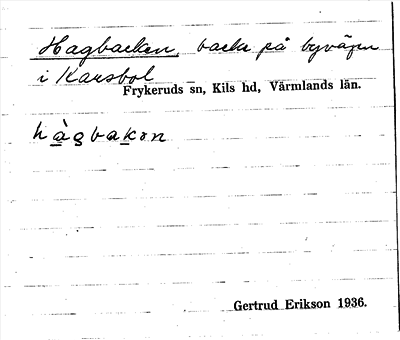 Hagbacken, backe på byvägen
i Karsbol
Frykeruds sn, Kils hd, Värmlands län.
hàgbakən
Gertrud Erikson 1936.